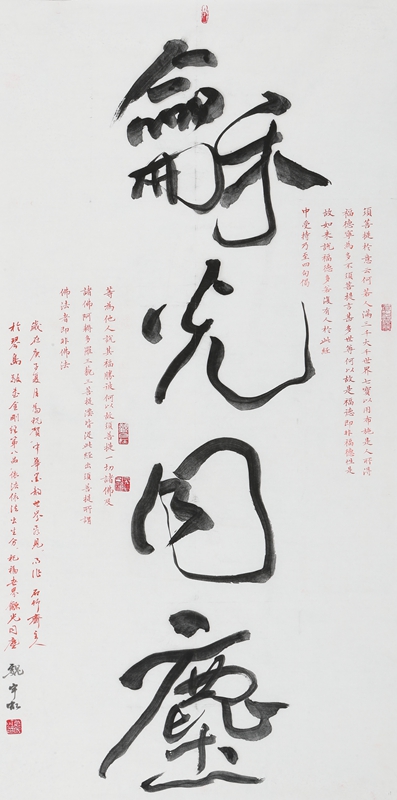 須菩提於意云何若人滿三千大千世界七寶以用布施是人所得
福德寧為多不須菩提言甚多世尊何以故是福德即非福德性是
故如来說福德多若復有人於此經
中受持乃至四句偈
龢光同塵
等為他人說其福勝彼何以故須菩提一切諸佛及
諸佛阿耨多羅三藐三菩提灋皆從此經出須菩提所謂
佛法者即非佛法
歲在庚子夏月為祝賀中華墨韵世界 石竹齋主人
於琴島敬書金剛經第八品依法依法出生分祝福世界龢光同塵
魏宇